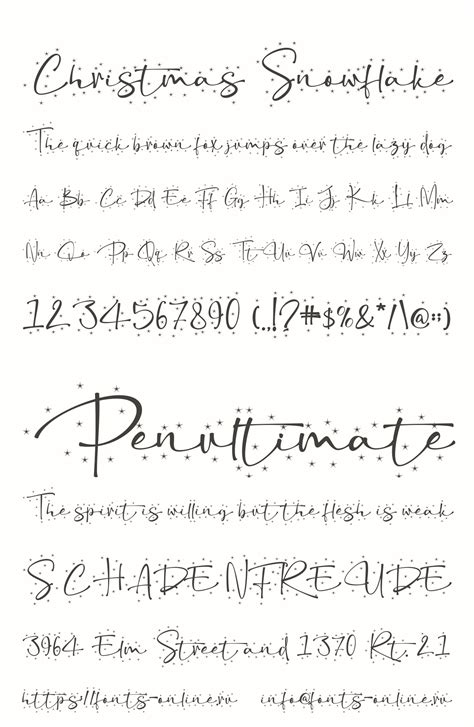 Christmas Snowflake
The quick brown fox jumps over the lazy dog
Aa Bb Cc Dd Ee Ff Gg Hh Ii Jj Kk Ll Mm
Nn Oo Pp Qq Rr Ss Tt Uu Vv Ww Xx Yy Zz
1234567890 (.,!?#$%&*/\@:;)
Penultimate
The spirit is willing but the flesh is weak
SCHADENFREUDE
3964 Elm Street and 1370 Rt. 21
https://fonts-online.ru info@fonts-online.ru